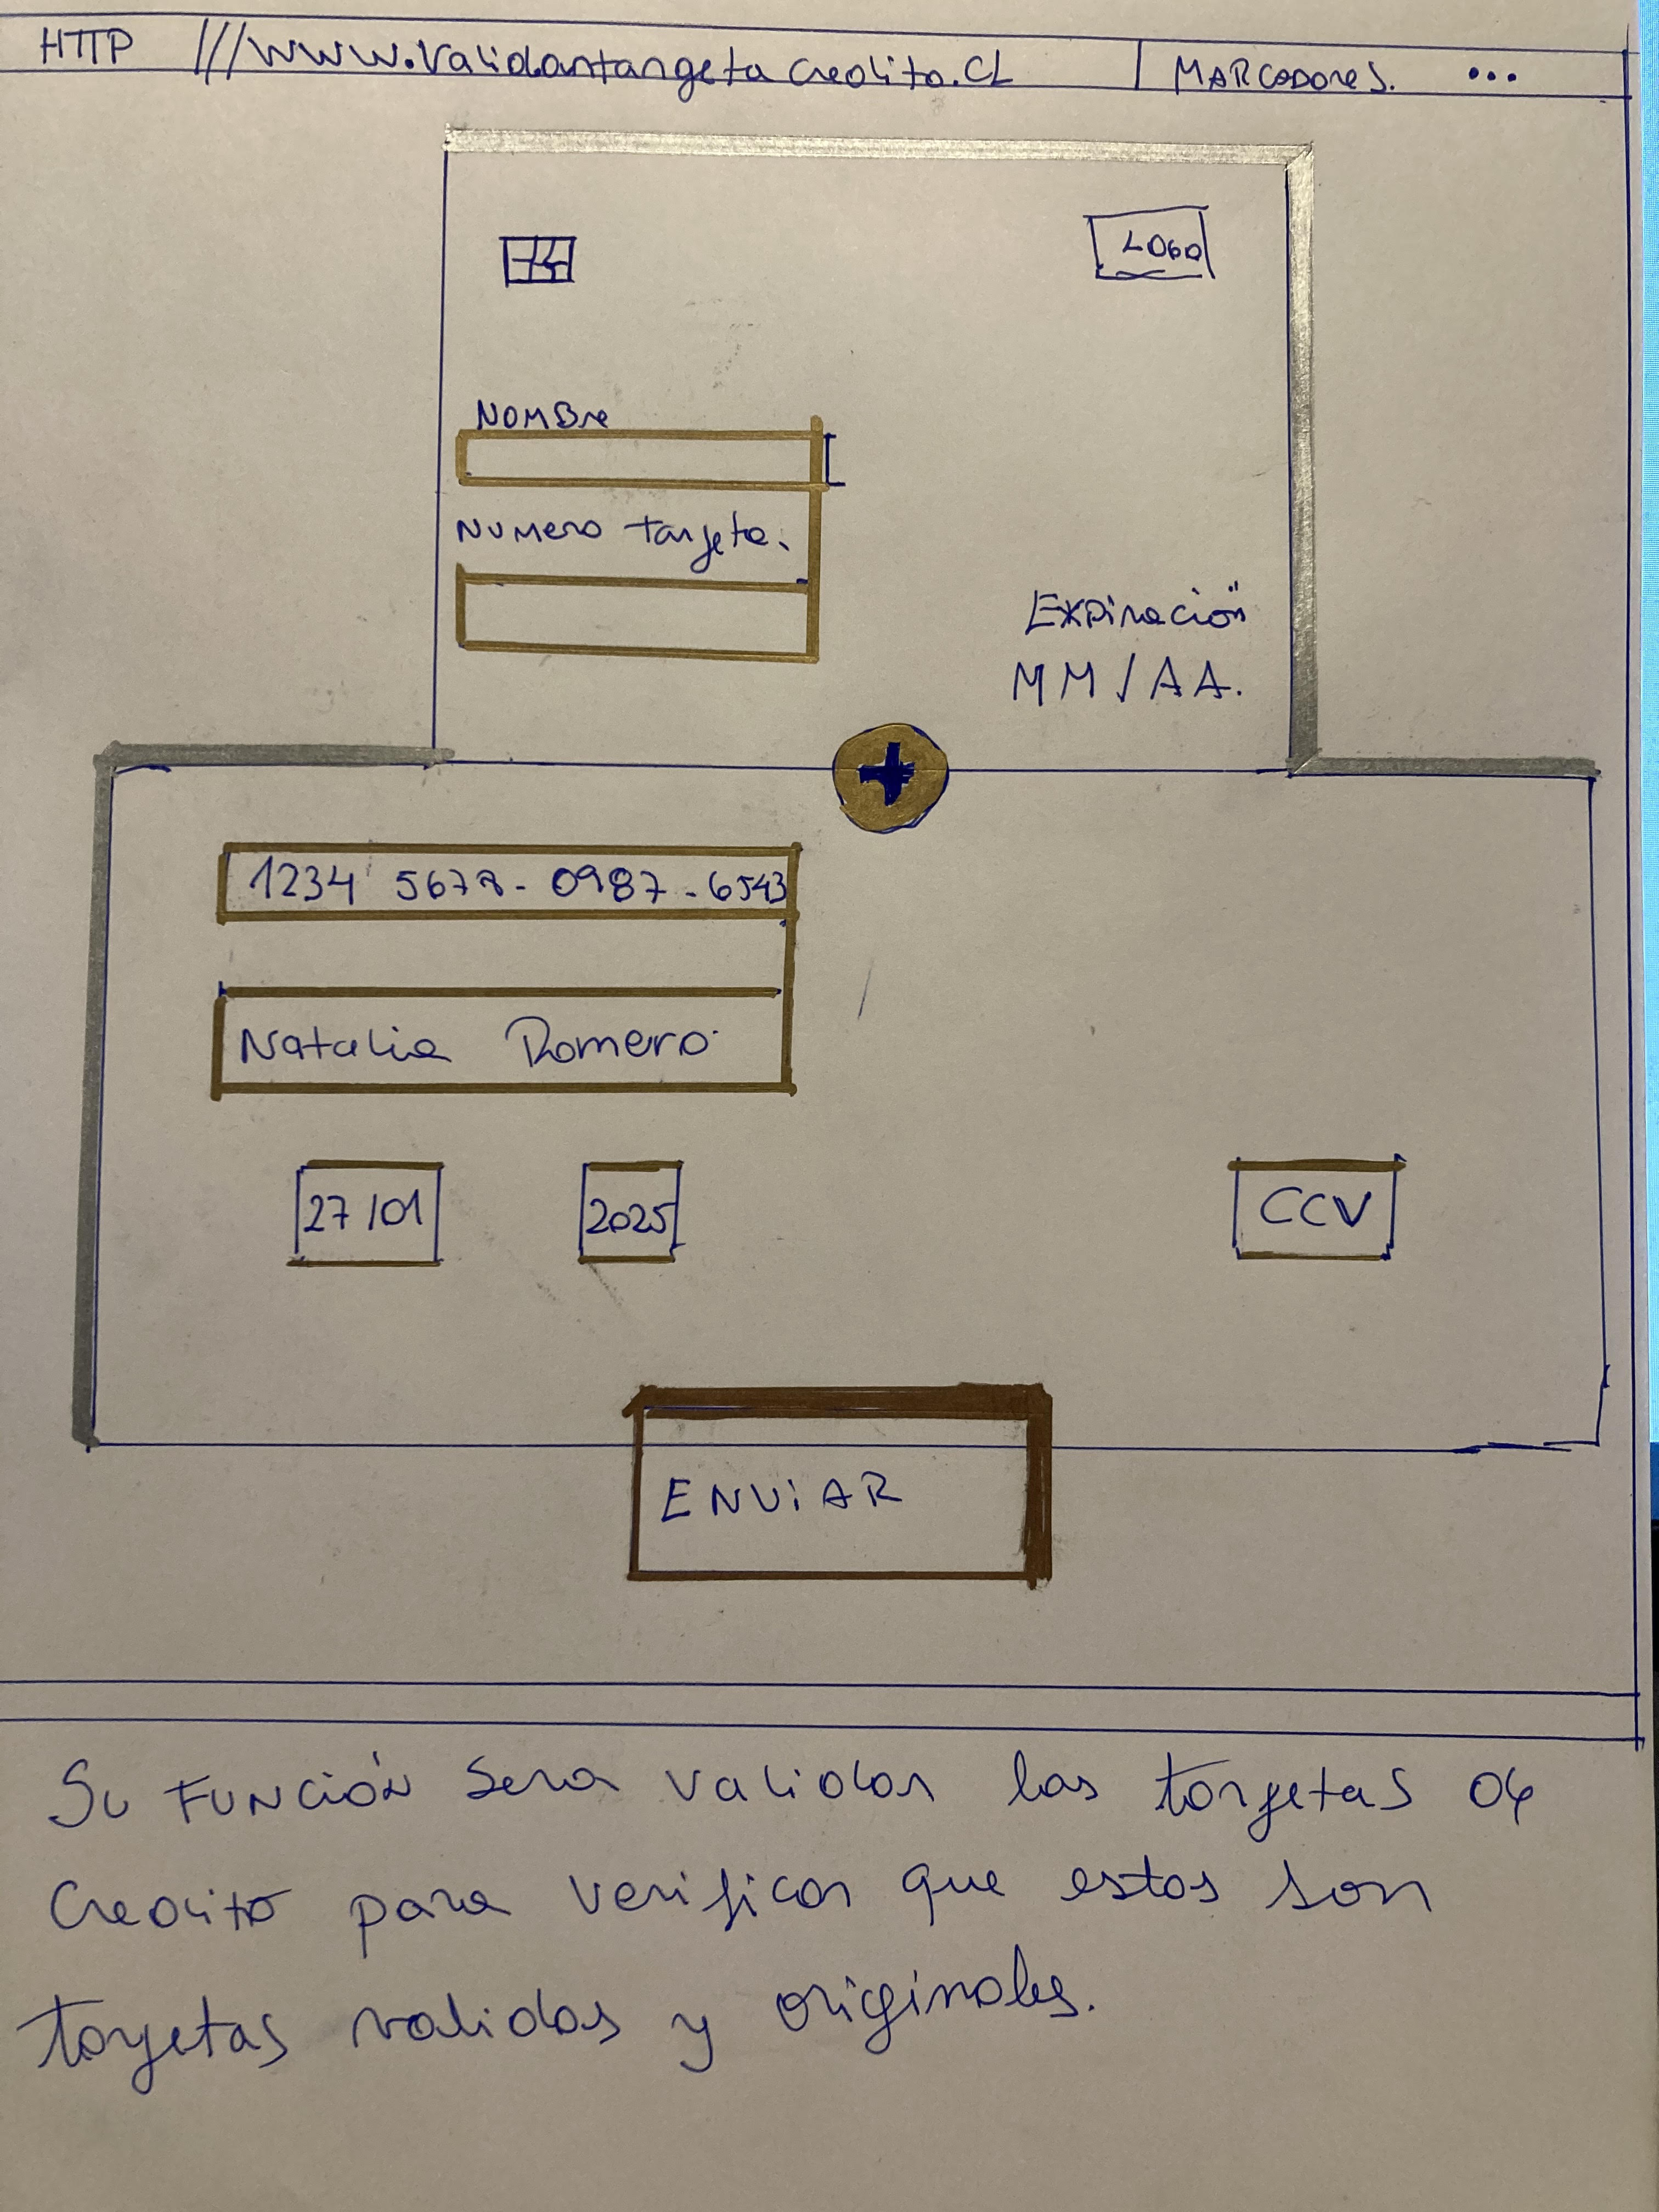 HTTP ///www.validartargetacredito.CL MARCADORES. ...
LOGO
NOMBre
NUMero Tarjeta.
Expiración
MM/AA.
+
1234 5678 - 0987 - 6543
Natalia Romero
27/01 2025 CCV
ENViAR
Su FUNCióN Sera validar las tarjetas de
Credito para verificar que estas son
tarjetas validas y originales.